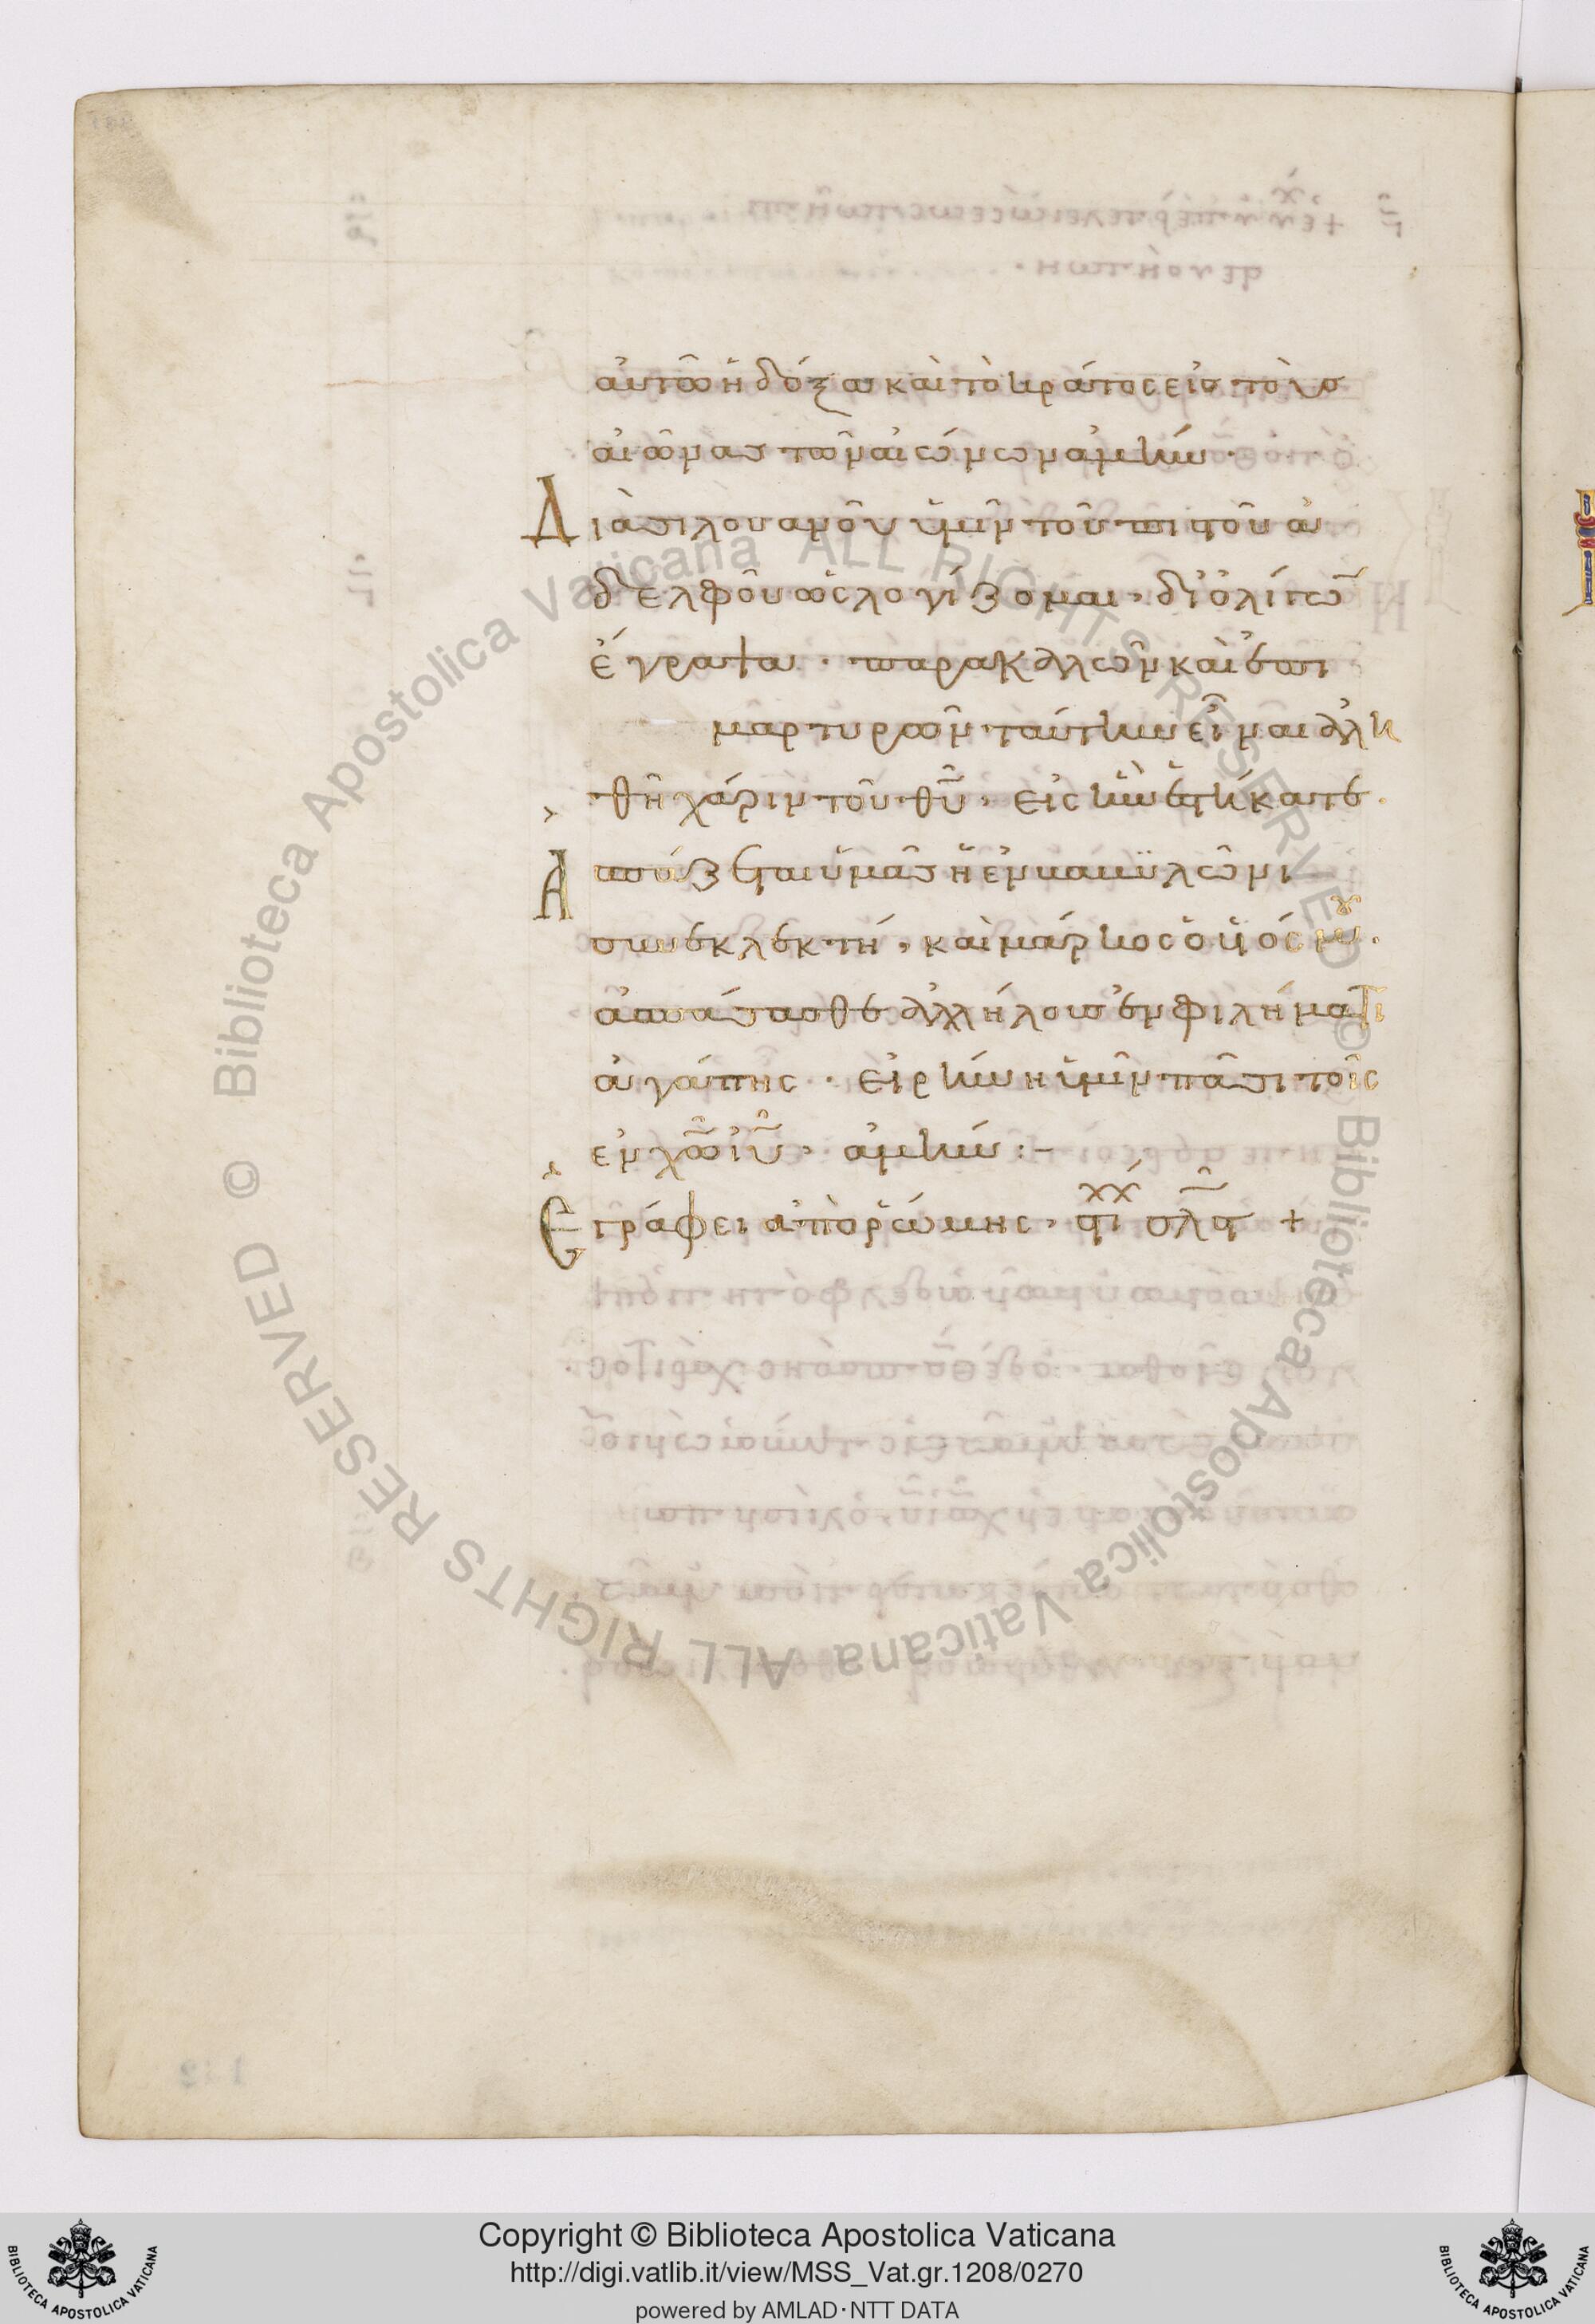 αὐτῶ ἡ δόξα καὶ τὸ κράτος εἰς τοὺς
αἰῶνας τῶν αἰώνων ἀμήν ·
Διὰ σιλουανοῦ ὑμῖν τοῦ πιστοῦ ἀ
δελφοῦ ὡς λογίζομαι, δι ὀλίγων
ἔγραψα · παρακαλῶν καὶ ἐπι
μαρτυρῶν ταύτην εἶναι ἀλη
θῆ χάριν τοῦ θῦ, εἰς ἣν ἑστήκατε ·
Ἀσπάζεται ὑμᾶς ἡ ἐν βαβυλῶνι
συνεκλεκτή, καὶ μάρκος ὁ υἱός μου ·
ἀσπάσασθε ἀλλήλους ἐν φιλήματι
ἀγάπης · Εἰρήνη ὑμῖν πᾶσι τοῖς
ἐν χῶ ἰῦ, ἀμήν :-
Ἐγράφει ἀπὸ ῥώμης, στί σλϛ +
Copyright © Biblioteca Apostolica Vaticana
http://digi.vatlib.it/view/MSS_Vat.gr.1208/0270
powered by AMLAD · NTT DATA
© Biblioteca Apostolica Vaticana ALL RIGHTS RESERVED
© Biblioteca Apostolica Vaticana ALL RIGHTS RESERVED
BIBLIOTECA APOSTOLICA VATICANA
BIBLIOTECA APOSTOLICA VATICANA